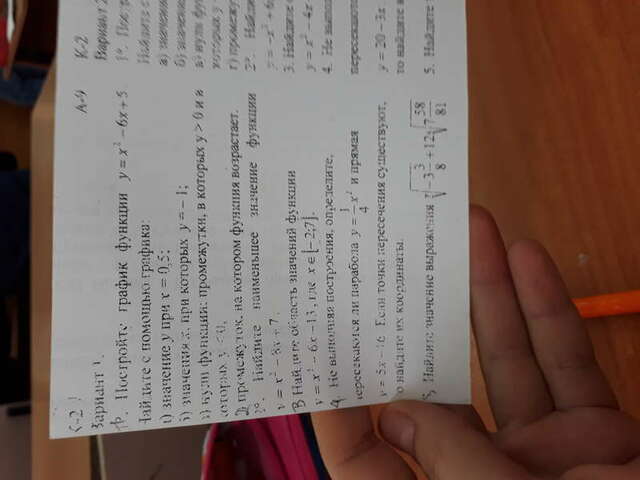 К-2 А-9
Вариант 1.
1⁰. Постройте график функции y = x² − 6x + 5.
Найдите с помощью графика:
а) значение y при x = 0,5;
б) значения x, при которых y = −1;
в) нули функции; промежутки, в которых y > 0 и в
которых y < 0;
г) промежуток, на котором функция возрастает.
2⁰. Найдите наименьшее значение функции
y = x² − 8x + 7.
3. Найдите область значений функции
y = x² − 6x − 13, где x ∈ [−2;7].
4. Не выполняя построения, определите,
пересекаются ли парабола y = 1/4 x² и прямая
y = 5x − 16. Если точки пересечения существуют,
то найдите их координаты.
5. Найдите значение выражения ∛(−3 3/8) + 12∜(7 58/81)
К-2
Вариант 2
1⁰. Постр
Найдите с
а) значени
б) значени
в) нули фу
которых y
г) промежу
2⁰. Найди
y = −x² + 6
3. Найдите о
y = x² − 4x
4. Не выпол
пересекаютс
y = 20 − 3x
то найдите и
5. Найдите